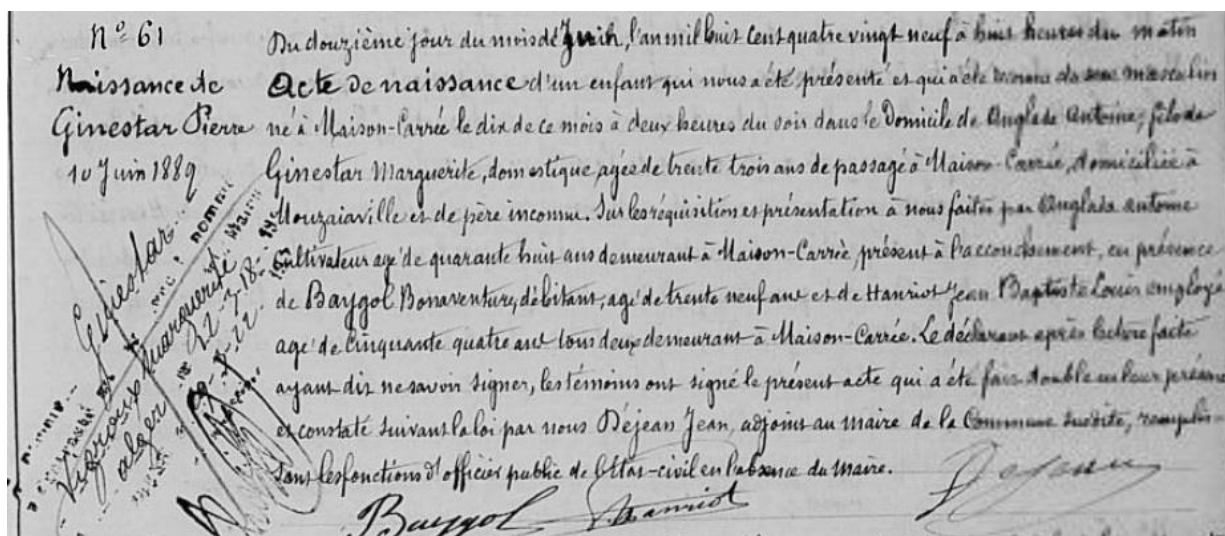 Nº 61
Naissance de
Ginestar Pierre
10 Juin 1889
Du douzième jour du mois de Juin, l'an mil huit cent quatre vingt neuf à huit heures du matin
Acte de naissance d'un enfant qui nous a été présenté et qui a été reconnu du sexe masculin
né à Maison-Carrée le dix de ce mois à deux heures du soir dans le Domicile de Anglade Antoine, fils de
Ginestar Marguerite, domestique, agée de trente trois ans de passage à Maison-Carrée, domiciliée à
Mouzaiaville et de père inconnu. Sur les réquisition et présentation à nous faites par Anglade Antoine
Cultivateur agé de quarante huit ans demeurant à Maison-Carrée, présent à l'accouchement, en présence
de Baygol Bonaventure, débitant, agé de trente neuf ans et de Hanriot Jean Baptiste Louis employé
agé de Cinquante quatre ans tous deux demeurant à Maison-Carrée. Le déclarant après lecture faite
ayant dit ne savoir signer, les témoins ont signé le présent acte qui a été fait double en leur présence
et constaté suivant la loi par nous Déjean Jean, adjoint au maire de la Commune susdite, remplis-
sant les fonctions d'officier public de l'Etat-civil en l'absence du Maire.
Baygol Hanriot Dejean
Ginestar
Marguerite
alger